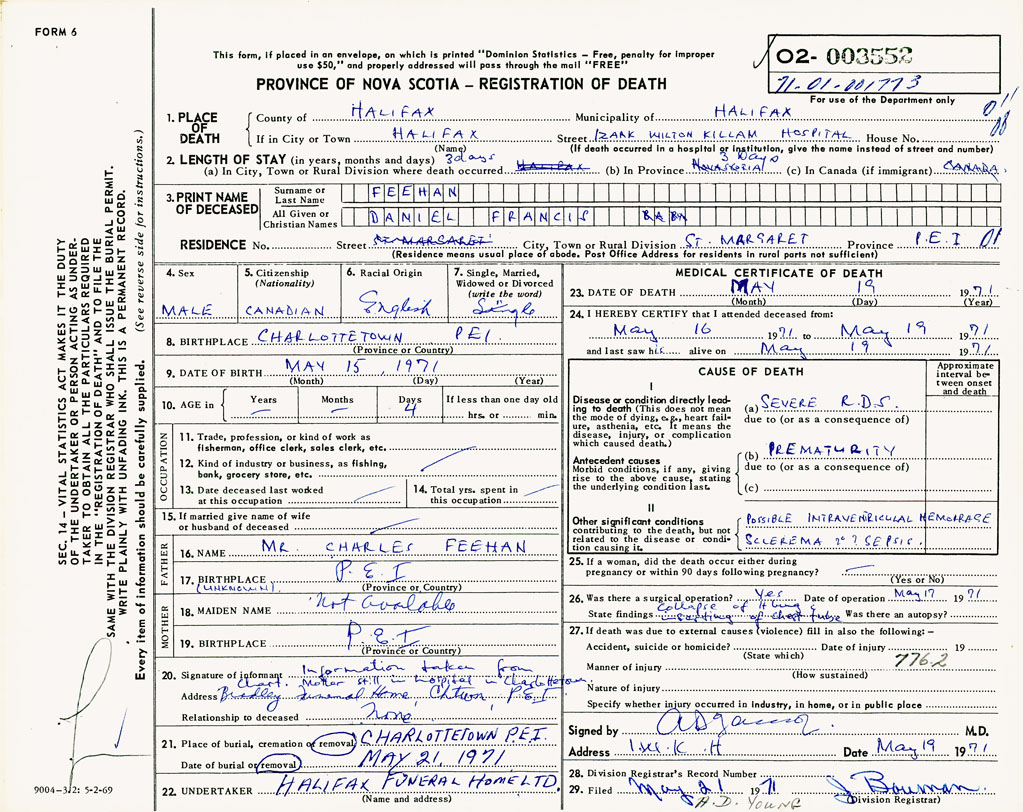 FORM 6
This form, if placed in an envelope, on which is printed "Dominion Statistics – Free, penalty for improper
use $50," and properly addressed will pass through the mail "FREE"
02- 003552
71-01-001773
For use of the Department only
PROVINCE OF NOVA SCOTIA – REGISTRATION OF DEATH
1. PLACE OF DEATH
County of HALIFAX Municipality of HALIFAX
If in City or Town HALIFAX Street IZAAK WILTON KILLAM HOSPITAL House No.
(Name) (If death occurred in a hospital or institution, give the name instead of street and number)
2. LENGTH OF STAY (in years, months and days) 3 days 3 Days
(a) In City, Town or Rural Division where death occurred HALIFAX (b) In Province NOVA SCOTIA (c) In Canada (if immigrant) CANADA
3. PRINT NAME OF DECEASED
Surname or Last Name FEEHAN
All Given or Christian Names DANIEL FRANCIS BABY
RESIDENCE No. Street ST. MARGARET City, Town or Rural Division ST. MARGARET Province P.E.I
(Residence means usual place of abode. Post Office Address for residents in rural parts not sufficient)
4. Sex MALE
5. Citizenship (Nationality) CANADIAN
6. Racial Origin English
7. Single, Married, Widowed or Divorced (write the word) Single
8. BIRTHPLACE CHARLOTTETOWN PEI.
(Province or Country)
9. DATE OF BIRTH MAY 15, 1971
(Month) (Day) (Year)
10. AGE in Years – Months – Days 4 If less than one day old
hrs. or min.
OCCUPATION
11. Trade, profession, or kind of work as fisherman, office clerk, sales clerk, etc.
12. Kind of industry or business, as fishing, bank, grocery store, etc.
13. Date deceased last worked at this occupation
14. Total yrs. spent in this occupation
15. If married give name of wife or husband of deceased
FATHER
16. NAME MR. CHARLES FEEHAN
17. BIRTHPLACE P.E.I
(UNKNOWN) (Province or Country)
MOTHER
18. MAIDEN NAME Not Available
19. BIRTHPLACE P.E.I
(Province or Country)
20. Signature of informant Information taken from
Chart. Mother still in hospital in Charlottetown.
Address Bradley Funeral Home, Ch'town, P.E.I
Relationship to deceased None
21. Place of burial, cremation or removal CHARLOTTETOWN P.E.I.
Date of burial or removal MAY 21, 1971
22. UNDERTAKER HALIFAX FUNERAL HOME LTD.
(Name and address)
MEDICAL CERTIFICATE OF DEATH
23. DATE OF DEATH MAY 19 1971
(Month) (Day) (Year)
24. I HEREBY CERTIFY that I attended deceased from:
May 16 1971 to May 19 1971
and last saw his alive on May 19 1971
CAUSE OF DEATH
Approximate interval between onset and death
I
Disease or condition directly leading to death (This does not mean the mode of dying, e.g., heart failure, asthenia, etc. It means the disease, injury, or complication which caused death.)
(a) SEVERE R.D.S.
due to (or as a consequence of)
Antecedent causes
Morbid conditions, if any, giving rise to the above cause, stating the underlying condition last.
(b) PREMATURITY
due to (or as a consequence of)
(c)
II
Other significant conditions contributing to the death, but not related to the disease or condition causing it.
POSSIBLE INTRAVENTRICULAR HEMORRAGE
SCLEREMA 2° ? SEPSIS.
25. If a woman, did the death occur either during pregnancy or within 90 days following pregnancy?
(Yes or No)
26. Was there a surgical operation? Yes Date of operation May 17 1971
State findings Collapse of lung & of chest tube Was there an autopsy?
27. If death was due to external causes (violence) fill in also the following: –
Accident, suicide or homicide? Date of injury 19
(State which) 776.2
Manner of injury
(How sustained)
Nature of injury
Specify whether injury occurred in industry, in home, or in public place
Signed by M.D.
Address I.W.K.H Date May 19 1971
28. Division Registrar's Record Number
29. Filed May 21 1971 J. Bowman
A.D. YOUNG Division Registrar
SEC. 14 – VITAL STATISTICS ACT MAKES IT THE DUTY
OF THE UNDERTAKER OR PERSON ACTING AS UNDERTAKER TO OBTAIN ALL THE PARTICULARS REQUIRED
IN THE "REGISTRATION OF DEATH" AND TO FILE THE
SAME WITH THE DIVISION REGISTRAR WHO SHALL ISSUE THE BURIAL PERMIT.
WRITE PLAINLY WITH UNFADING INK. THIS IS A PERMANENT RECORD.
Every item of information should be carefully supplied. (See reverse side for instructions.)
9004-3/2: 5-2-69